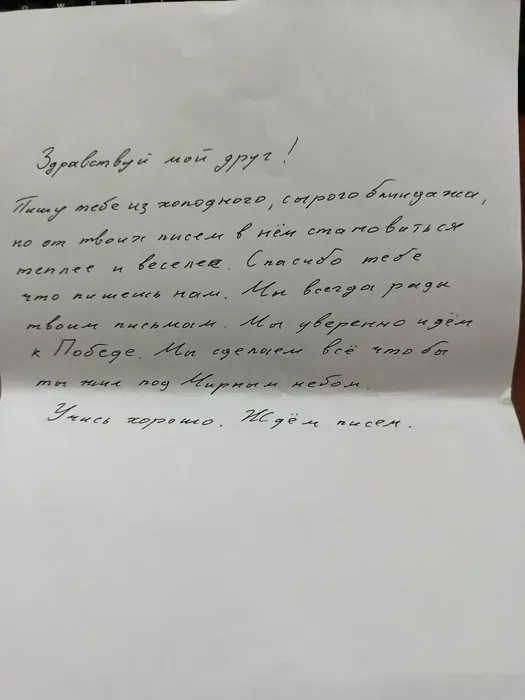 Здравствуй мой друг!
Пишу тебе из холодного, сырого блиндажа,
но от твоих писем в нём становиться
теплее и веселее. Спасибо тебе
что пишешь нам. Мы всегда рады
твоим письмам. Мы уверенно идём
к Победе. Мы сделаем всё что бы
ты жил под Мирным небом.
Учись хорошо. Ждём писем.